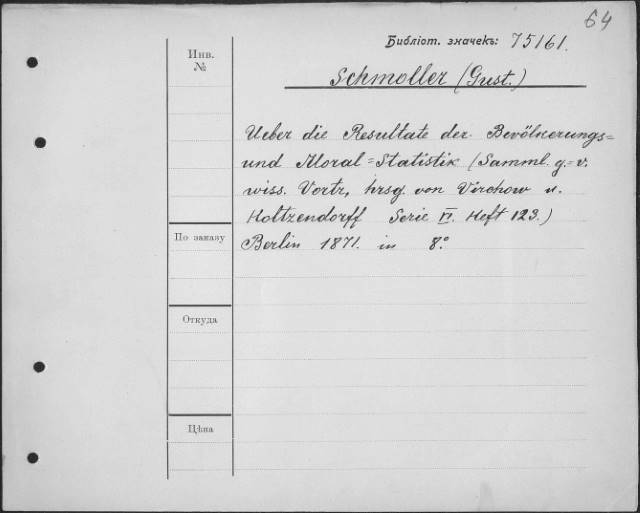 64
Библіот. значекъ: 75161.
Инв. №
Schmoller (Gust.)
Ueber die Resultate der Bevölkerungs=
und Moral=Statistik (Samml. g.=v.
wiss. Vortr, hrsg. von Virchow u.
Holtzendorff Serie VI. Heft 123.)
По заказу
Berlin 1871. in 8.°
Откуда
Цѣна